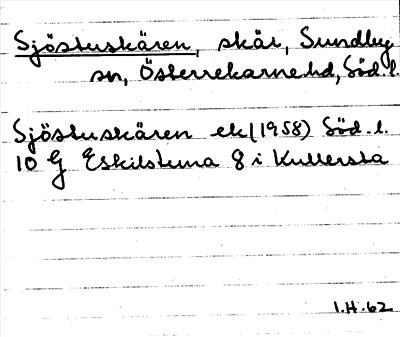 Sjöstuskären, skär, Sundby
sn, Österrekarne hd, Söd. l.
Sjöstuskären ek (1958) Söd. l.
10 G Eskilstuna 8 i Kullersta
I.H.62